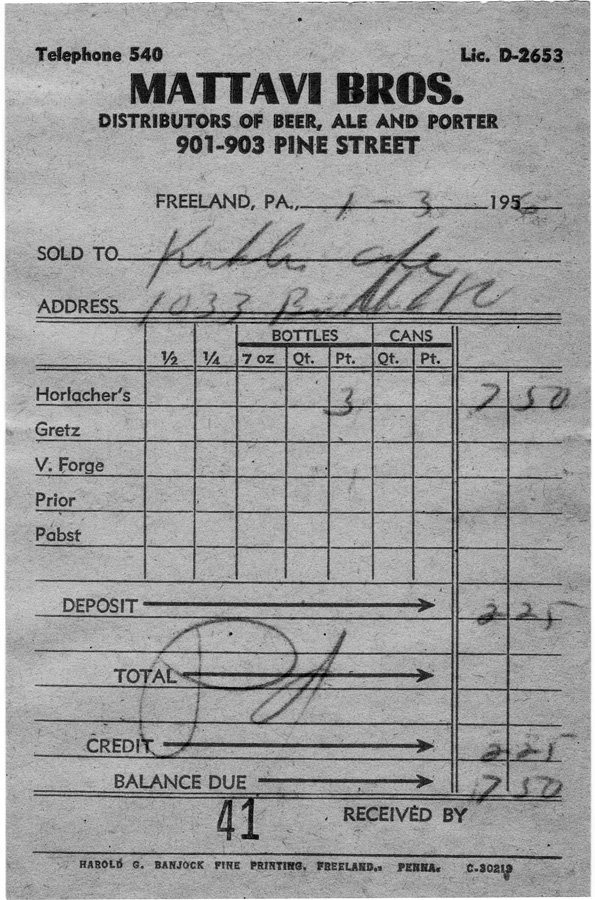 Telephone 540 Lic. D-2653
MATTAVI BROS.
DISTRIBUTORS OF BEER, ALE AND PORTER
901-903 PINE STREET
FREELAND, PA., 1-3 1956
SOLD TO cafe
ADDRESS 1033
BOTTLES CANS
½ ¼ 7 oz Qt. Pt. Qt. Pt.
Horlacher's 3 7 50
Gretz
V. Forge
Prior
Pabst
DEPOSIT 2 25
TOTAL
CREDIT 2 25
BALANCE DUE 7 50
41 RECEIVED BY
HAROLD G. BANJOCK FINE PRINTING, FREELAND., PENNA. C-30213